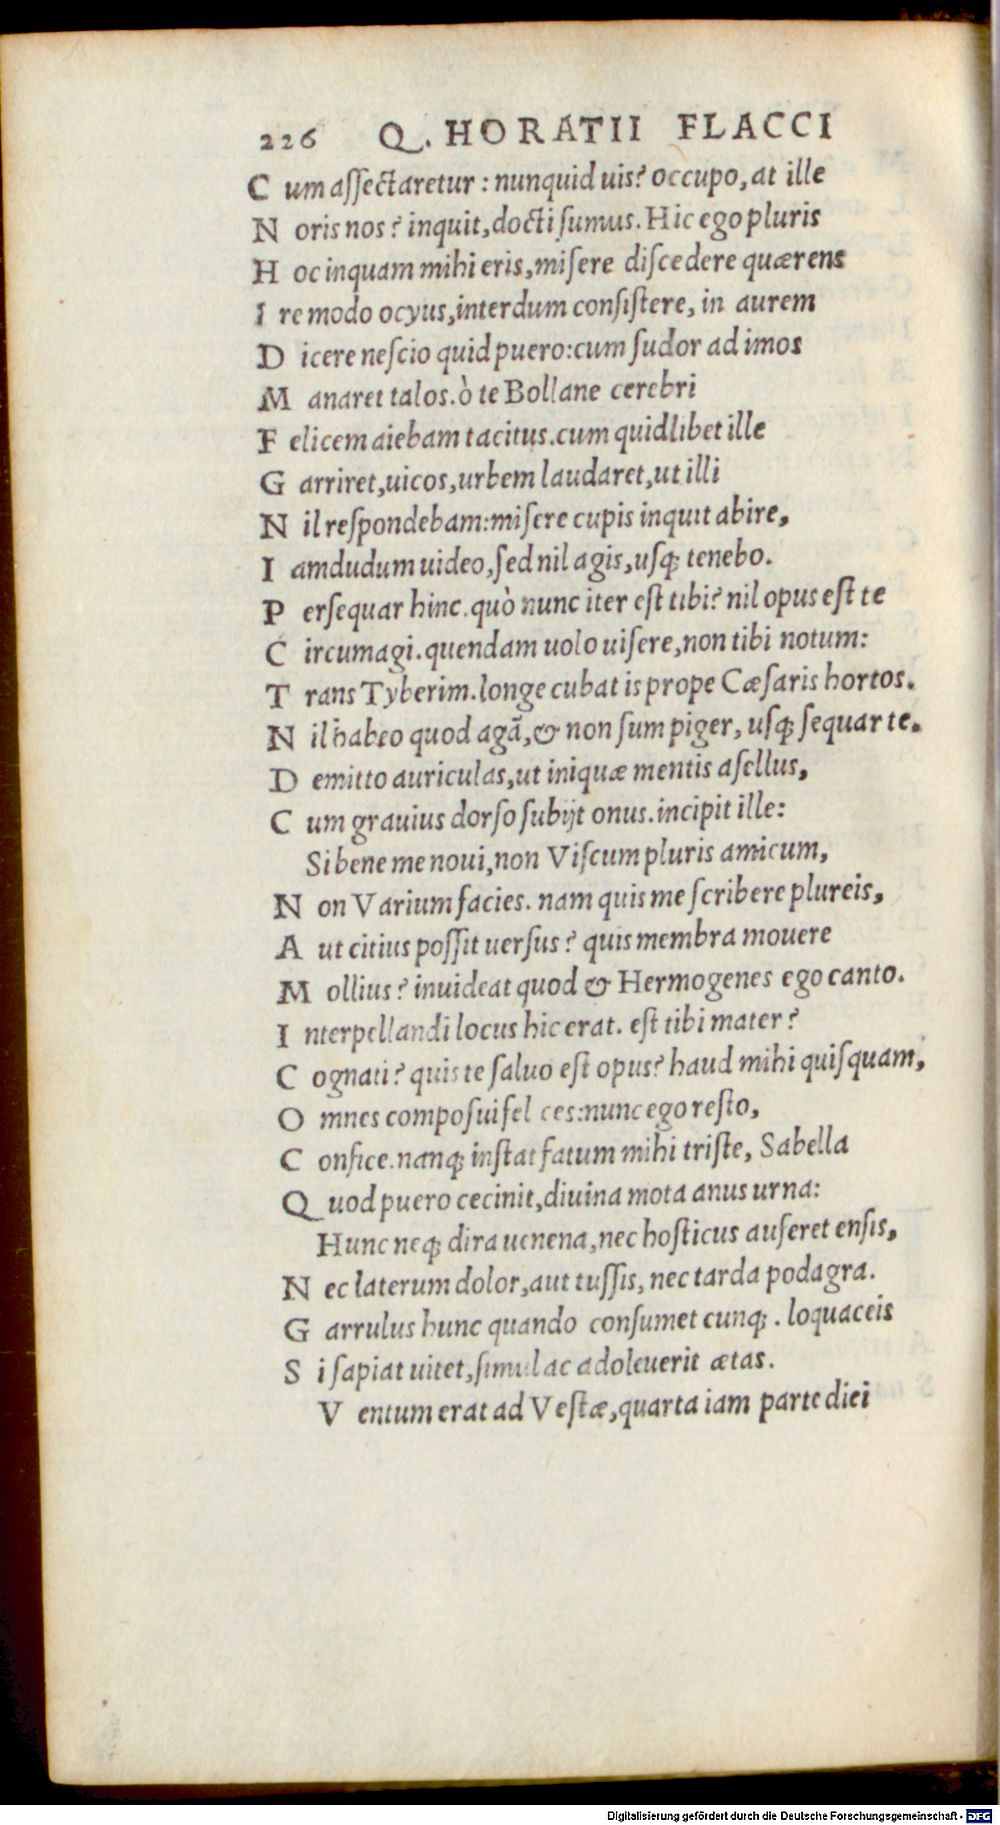 226 Q. HORATII FLACCI
C um aſſectaretur : nunquid uis? occupo, at ille
N oris nos? inquit, docti ſumus. Hic ego pluris
H oc inquam mihi eris, miſere diſcedere quærens
I re modo ocyus, interdum conſiſtere, in aurem
D icere neſcio quid puero: cum ſudor ad imos
M anaret talos. ò te Bollane cerebri
F elicem aiebam tacitus. cum quidlibet ille
G arriret, uicos, urbem laudaret, ut illi
N il reſpondebam: miſere cupis inquit abire,
I amdudum uideo, ſed nil agis, uſq; tenebo.
P erſequar hinc. quò nunc iter eſt tibi? nil opus eſt te
C ircumagi. quendam uolo uiſere, non tibi notum:
T rans Tyberim. longe cubat is prope Cæſaris hortos.
N il habeo quod agã, & non ſum piger, uſq; ſequar te.
D emitto auriculas, ut iniquæ mentis aſellus,
C um grauius dorſo ſubijt onus. incipit ille:
Si bene me noui, non Viſcum pluris amicum,
N on Varium facies. nam quis me ſcribere plureis,
A ut citius poſſit uerſus? quis membra mouere
M ollius? inuideat quod & Hermogenes ego canto.
I nterpellandi locus hic erat. eſt tibi mater?
C ognati? quis te ſaluo eſt opus? haud mihi quiſquam,
O mnes compoſui fel ces: nunc ego reſto,
C onfice. nanq; inſtat fatum mihi triſte, Sabella
Q uod puero cecinit, diuina mota anus urna:
Hunc neq; dira uenena, nec hoſticus auferet enſis,
N ec laterum dolor, aut tuſſis, nec tarda podagra.
G arrulus hunc quando conſumet cunq; . loquaceis
S i ſapiat uitet, ſimul ac adoleuerit ætas.
V entum erat ad Veſtæ, quarta iam parte diei
Digitalisierung gefördert durch die Deutsche Forschungsgemeinschaft - DFG